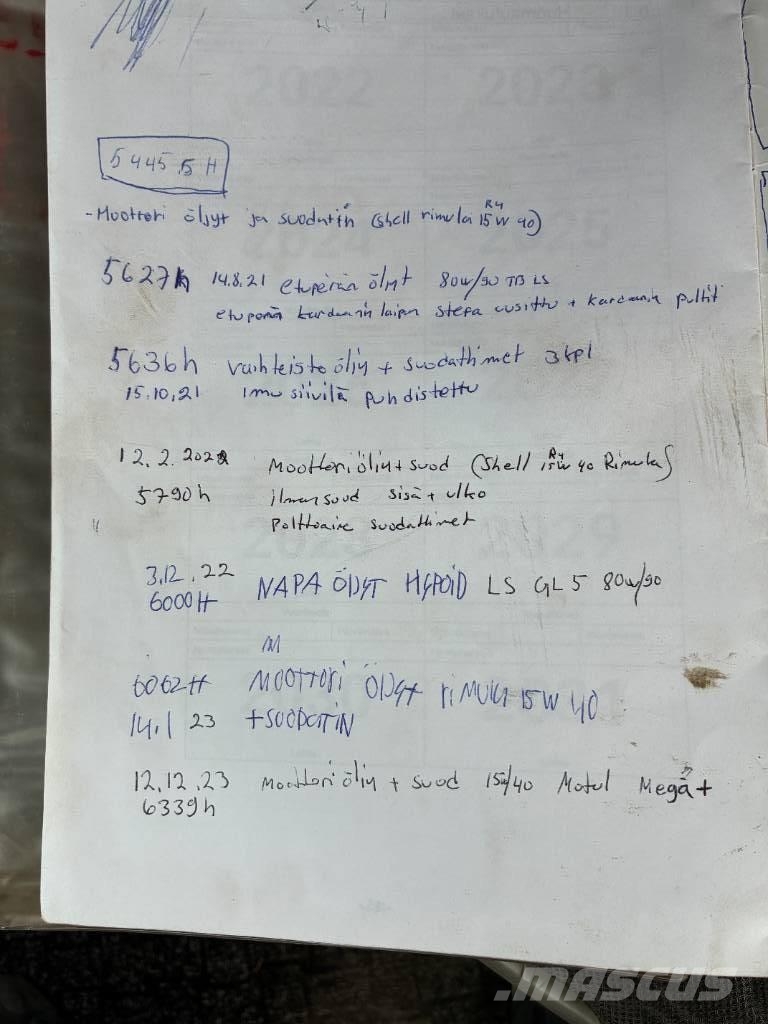 2022
2023
5445.5 H
- Moottori öljyt ja suodatin (shell rimula R4 15W 40)
5627h 14.8.21 etuperän öljyt 80w/90 TB LS
etuperän kardaanin laipan stefa uusittu + kardaanin pultit
5636h vaihteisto öljy + suodattimet 3kpl
15.10.21 imusiivilä puhdistettu
12.2.2022 Moottoriöljy + suod (Shell R4 15W 40 Rimula)
5790h ilmansuod sisä + ulko
Polttoaine suodattimet
3.12.22 NAPA ÖLJYT HYPOID LS GL5 80w/90
6000H
M
6062H MOOTTORI ÖLJYT riMULA 15W 40
14.1 23 +SUODATIN
12.12.23 Moottoriöljy + suod 15w/40 Motul Mega+
6339h
MASCUS